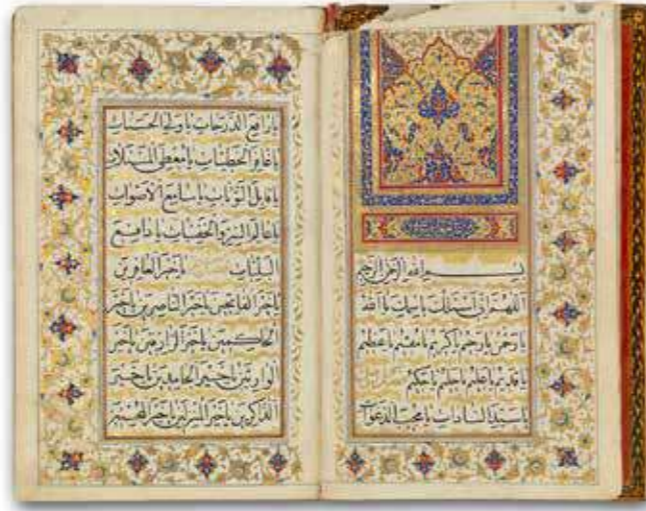 بسم الله الرحمن الرحيم
اللهم اني اسئلك باسمك يا الله
يا رحمن يا رحيم يا كريم يا مقيم يا عظيم
يا قديم يا عليم يا حليم يا حكيم
يا سيد السادات يا مجيب الدعوات
يا رافع الدرجات يا ولي الحسنات
يا غافر الخطيئات يا معطي المسئلات
يا قابل التوبات يا سامع الاصوات
يا عالم السر والخفيات يا دافع
البليات يا خير الغافرين
يا خير الفاتحين يا خير الناصرين يا خير
الحاكمين يا خير الرازقين يا خير
الوارثين يا خير الحامدين يا خير
الذاكرين يا خير المنزلين يا خير المحسنين